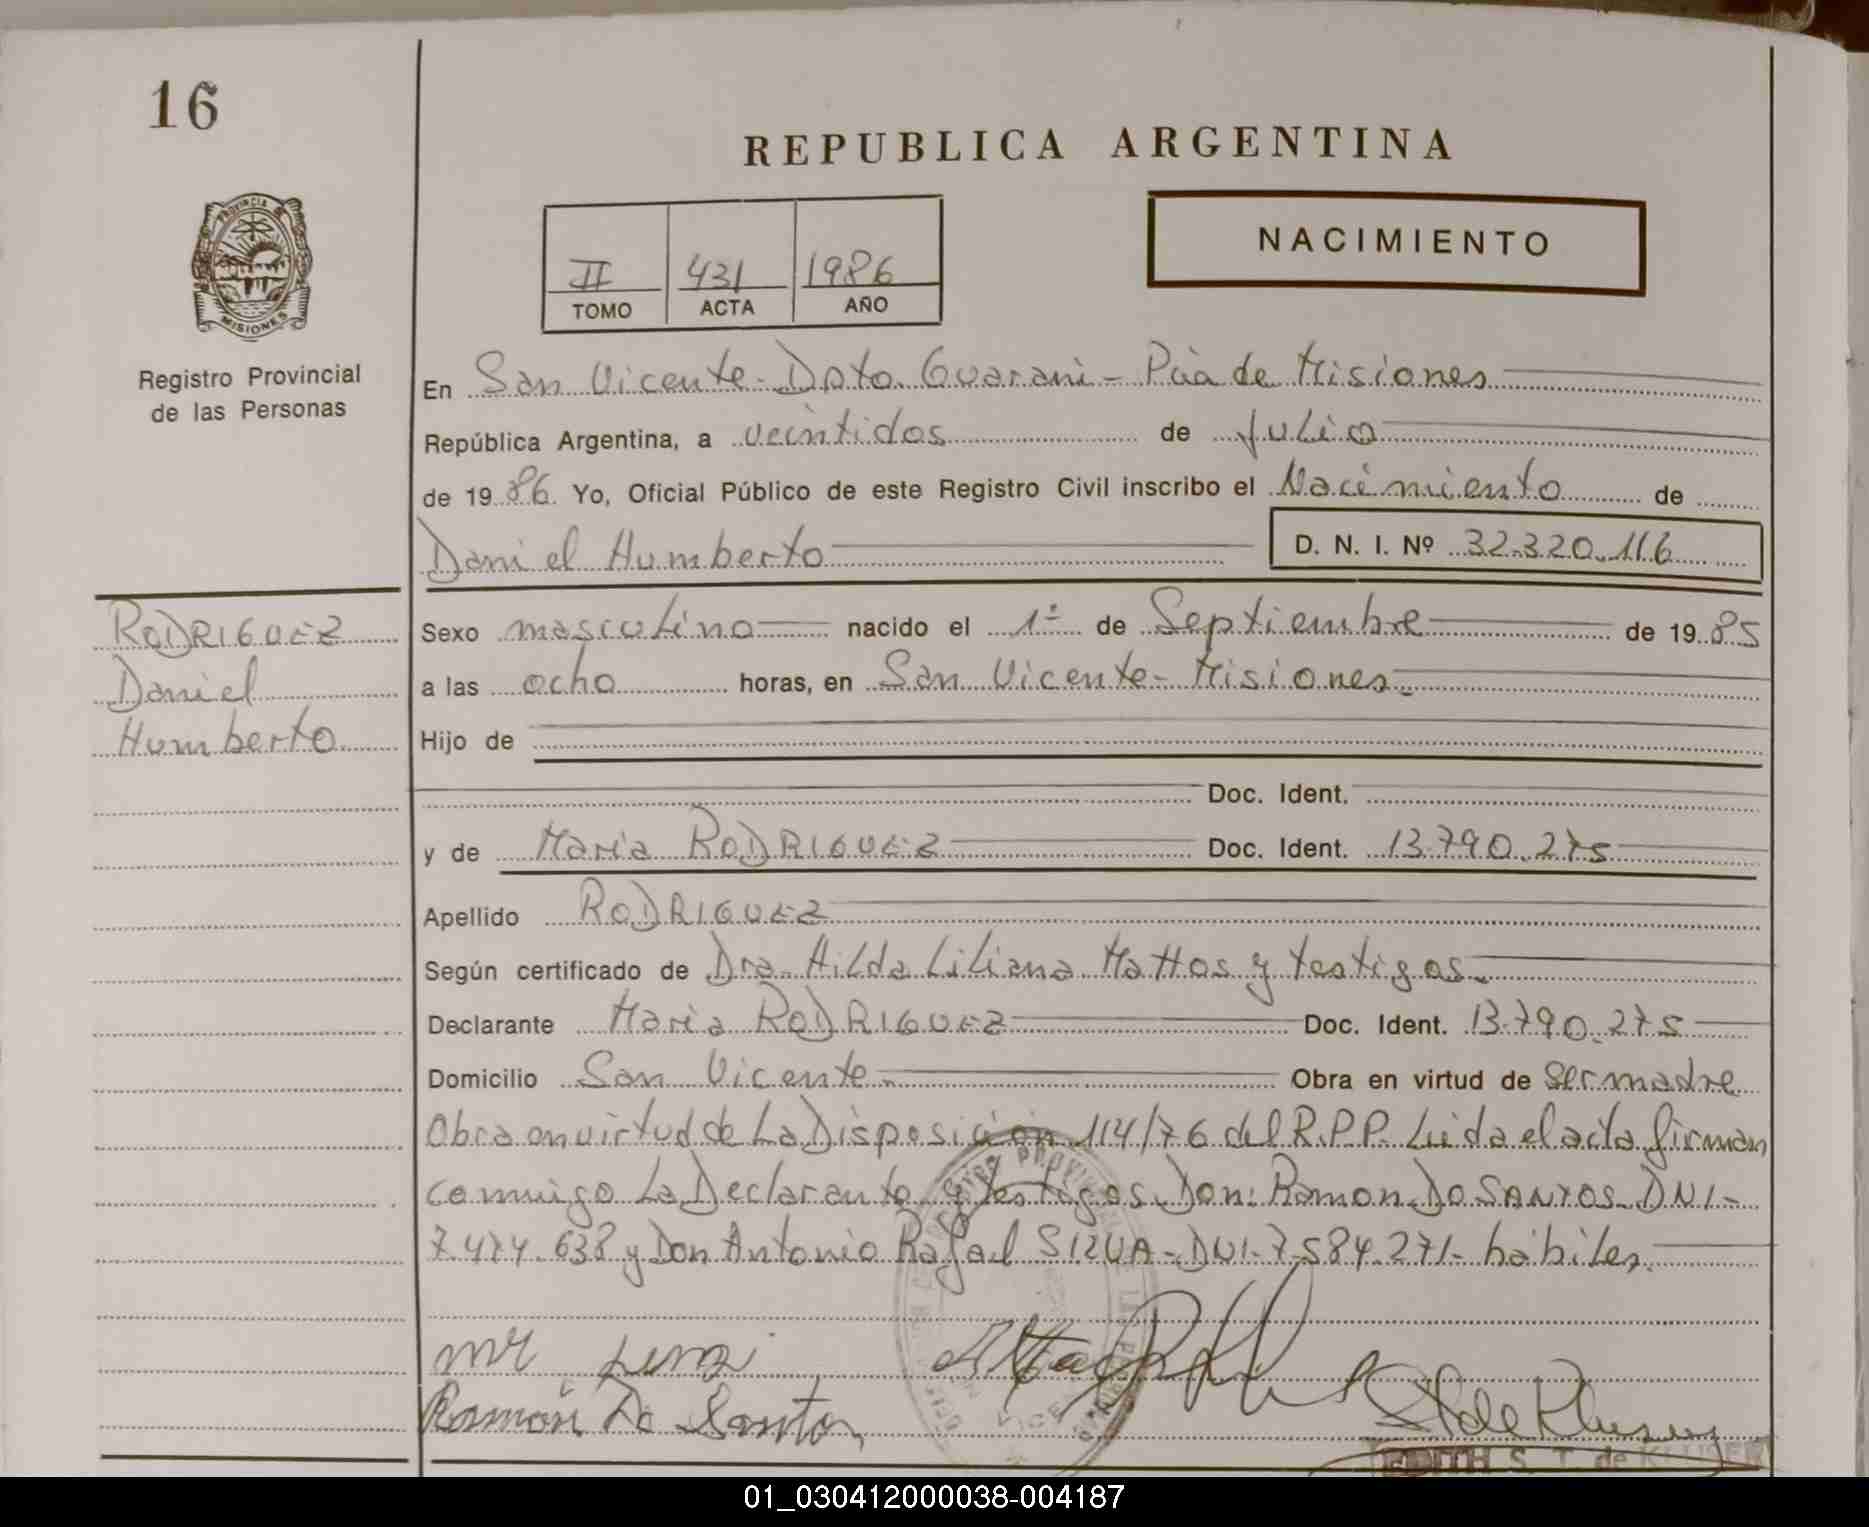 16
REPUBLICA ARGENTINA
PROVINCIA DE
MISIONES
II 431 1986
TOMO ACTA AÑO
NACIMIENTO
Registro Provincial
de las Personas
En San Vicente - Dpto. Guarani - Pcia de Misiones
República Argentina, a veintidos de Julio
de 1986. Yo, Oficial Público de este Registro Civil inscribo el Nacimiento de
Daniel Humberto D. N. I. Nº 32.320.116
RODRIGUEZ
Daniel
Humberto
Sexo masculino nacido el 1º de Septiembre de 1985
a las ocho horas, en San Vicente - Misiones.
Hijo de
Doc. Ident.
y de Maria RODRIGUEZ Doc. Ident. 13.790.275
Apellido RODRIGUEZ
Según certificado de Dra. Hilda Liliana Mattos y testigos.
Declarante Maria RODRIGUEZ Doc. Ident. 13.790.275
Domicilio San Vicente. Obra en virtud de ser madre
Obra en virtud de La Disposición 114/76 del R.P.P. Leida el acta firman
conmigo La Declarante y testigos Don: Ramon Do SANTOS DNI-
7.474.638 y Don Antonio Rafael SILVA - DNI- 7.584.271- hábiles.
Ramón Do Santos
S T de Kluser
EDITH S. T. de KLUSER
01_030412000038-004187